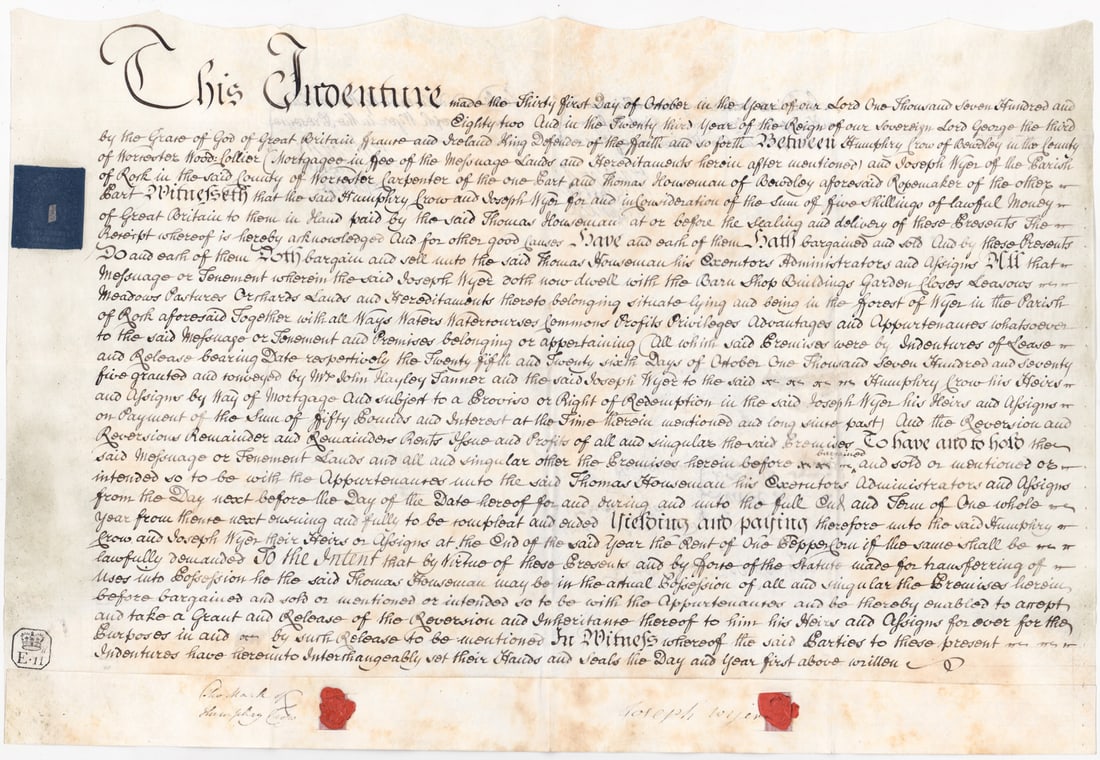 This Indenture made the Thirty first Day of October in the Year of our Lord One Thousand Seven Hundred and
Eighty two And in the Twenty third Year of the Reign of our Sovereign Lord George the third
by the Grace of God of Great Britain France and Ireland King Defender of the Faith and so forth Between Humphry Crow of Bewdley in the County
of Worcester Wood Collier (Mortgagee in ffee of the Messuage Lands and Hereditaments herein after mentioned) and Joseph Wyer of the Parish
of Rock in the said County of Worcester Carpenter of the one Part and Thomas Houseman of Bewdley aforesaid Ropemaker of the other
Part Witnesseth that the said Humphry Crow and Joseph Wyer for and in Consideration of the Sum of ffive Shillings of lawful Money
of Great Britain to them in Hand paid by the said Thomas Houseman at or before the Sealing and delivery of these Presents The
Receipt whereof is hereby acknowledged And for other good Causes Have and each of them Hath bargained and sold And by these Presents
Do and each of them Doth bargain and sell unto the said Thomas Houseman his Executors Administrators and Assigns All that
Messuage or Tenement wherein the said Joseph Wyer doth now dwell with the Barn Shop Buildings Garden Closes Leasows
Meadows Pastures Orchards Lands and Hereditaments thereto belonging situate lying and being in the fforest of Wyer in the Parish
of Rock aforesaid Together with all Ways Waters Watercourses Commons Profits Privileges Advantages and Appurtenances whatsoever
to the said Messuage or Tenement and Premises belonging or appertaining (All which said Premises were by Indentures of Lease
and Release bearing Date respectively the Twenty fifth and Twenty sixth Days of October One Thousand Seven Hundred and seventy
five granted and conveyed by Mr. John Hayley Tanner and the said Joseph Wyer to the said Humphry Crow his Heirs
and Assigns by Way of Mortgage And subject to a Proviso or Right of Redemption in the said Joseph Wyer his Heirs and Assigns
on Payment of the Sum of ffifty Pounds and Interest at the Time therein mentioned and long since past) And the Reversion and
Reversions Remainder and Remainders Rents Issue and Profits of all and singular the said Premises To have and to hold the
said Messuage or Tenement Lands and all and singular other the Premises herein before bargained and sold or mentioned or
intended so to be with the Appurtenances unto the said Thomas Houseman his Executors Administrators and Assigns
from the Day next before the Day of the Date hereof for and during and unto the full End and Term of One whole
Year from thence next ensuing and fully to be compleat and ended Yielding and paying therefore unto the said Humphry
Crow and Joseph Wyer their Heirs or Assigns at the End of the said Year the Rent of One Pepper Corn if the same shall be
lawfully demanded To the Intent that by Virtue of these Presents and by fforce of the Statute made for transferring of
Uses into Possession he the said Thomas Houseman may be in the actual Possession of all and singular the Premises herein
before bargained and sold or mentioned or intended so to be with the Appurtenances and be thereby enabled to accept
and take a Grant and Release of the Reversion and Inheritance thereof to him his Heirs and Assigns for ever for the
Purposes in and by such Release to be mentioned In Witness whereof the said Parties to these present
Indentures have hereunto Interchangeably set their Hands and Seals the Day and Year first above written
E·11
The Mark of
Humphry Crow
Joseph Wyer